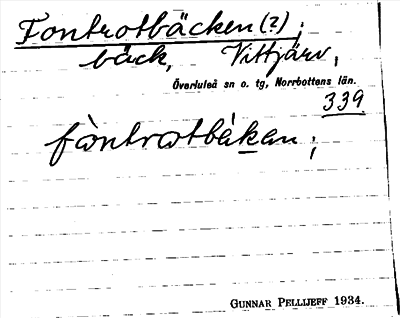 Fontrotbäcken (2);
bäck, Vittjärv,
Överluleå sn o. tg, Norrbottens län.
339
fòntrotbèkan;
GUNNAR PELLIJEFF 1934.